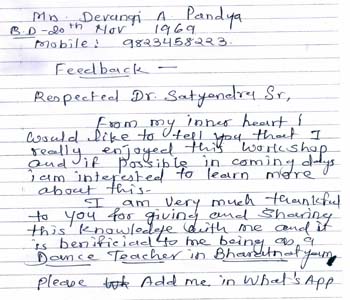 Mn. Devangi A Pandya
B.D-20th Nov 1969
Mobile: 9823458223.
Feedback —
Respected Dr. Satyendra Sr,
From my inner heart I
would like to tell you that I
really enjoyed this workshop
and if possible in coming days
iam interested to learn more
about this-
I am very much thankful
to you for giving and sharing
this knowledge with me and it
is benificial to me being as a
Dance Teacher in Bharatnatyam
Please Add me in What's App